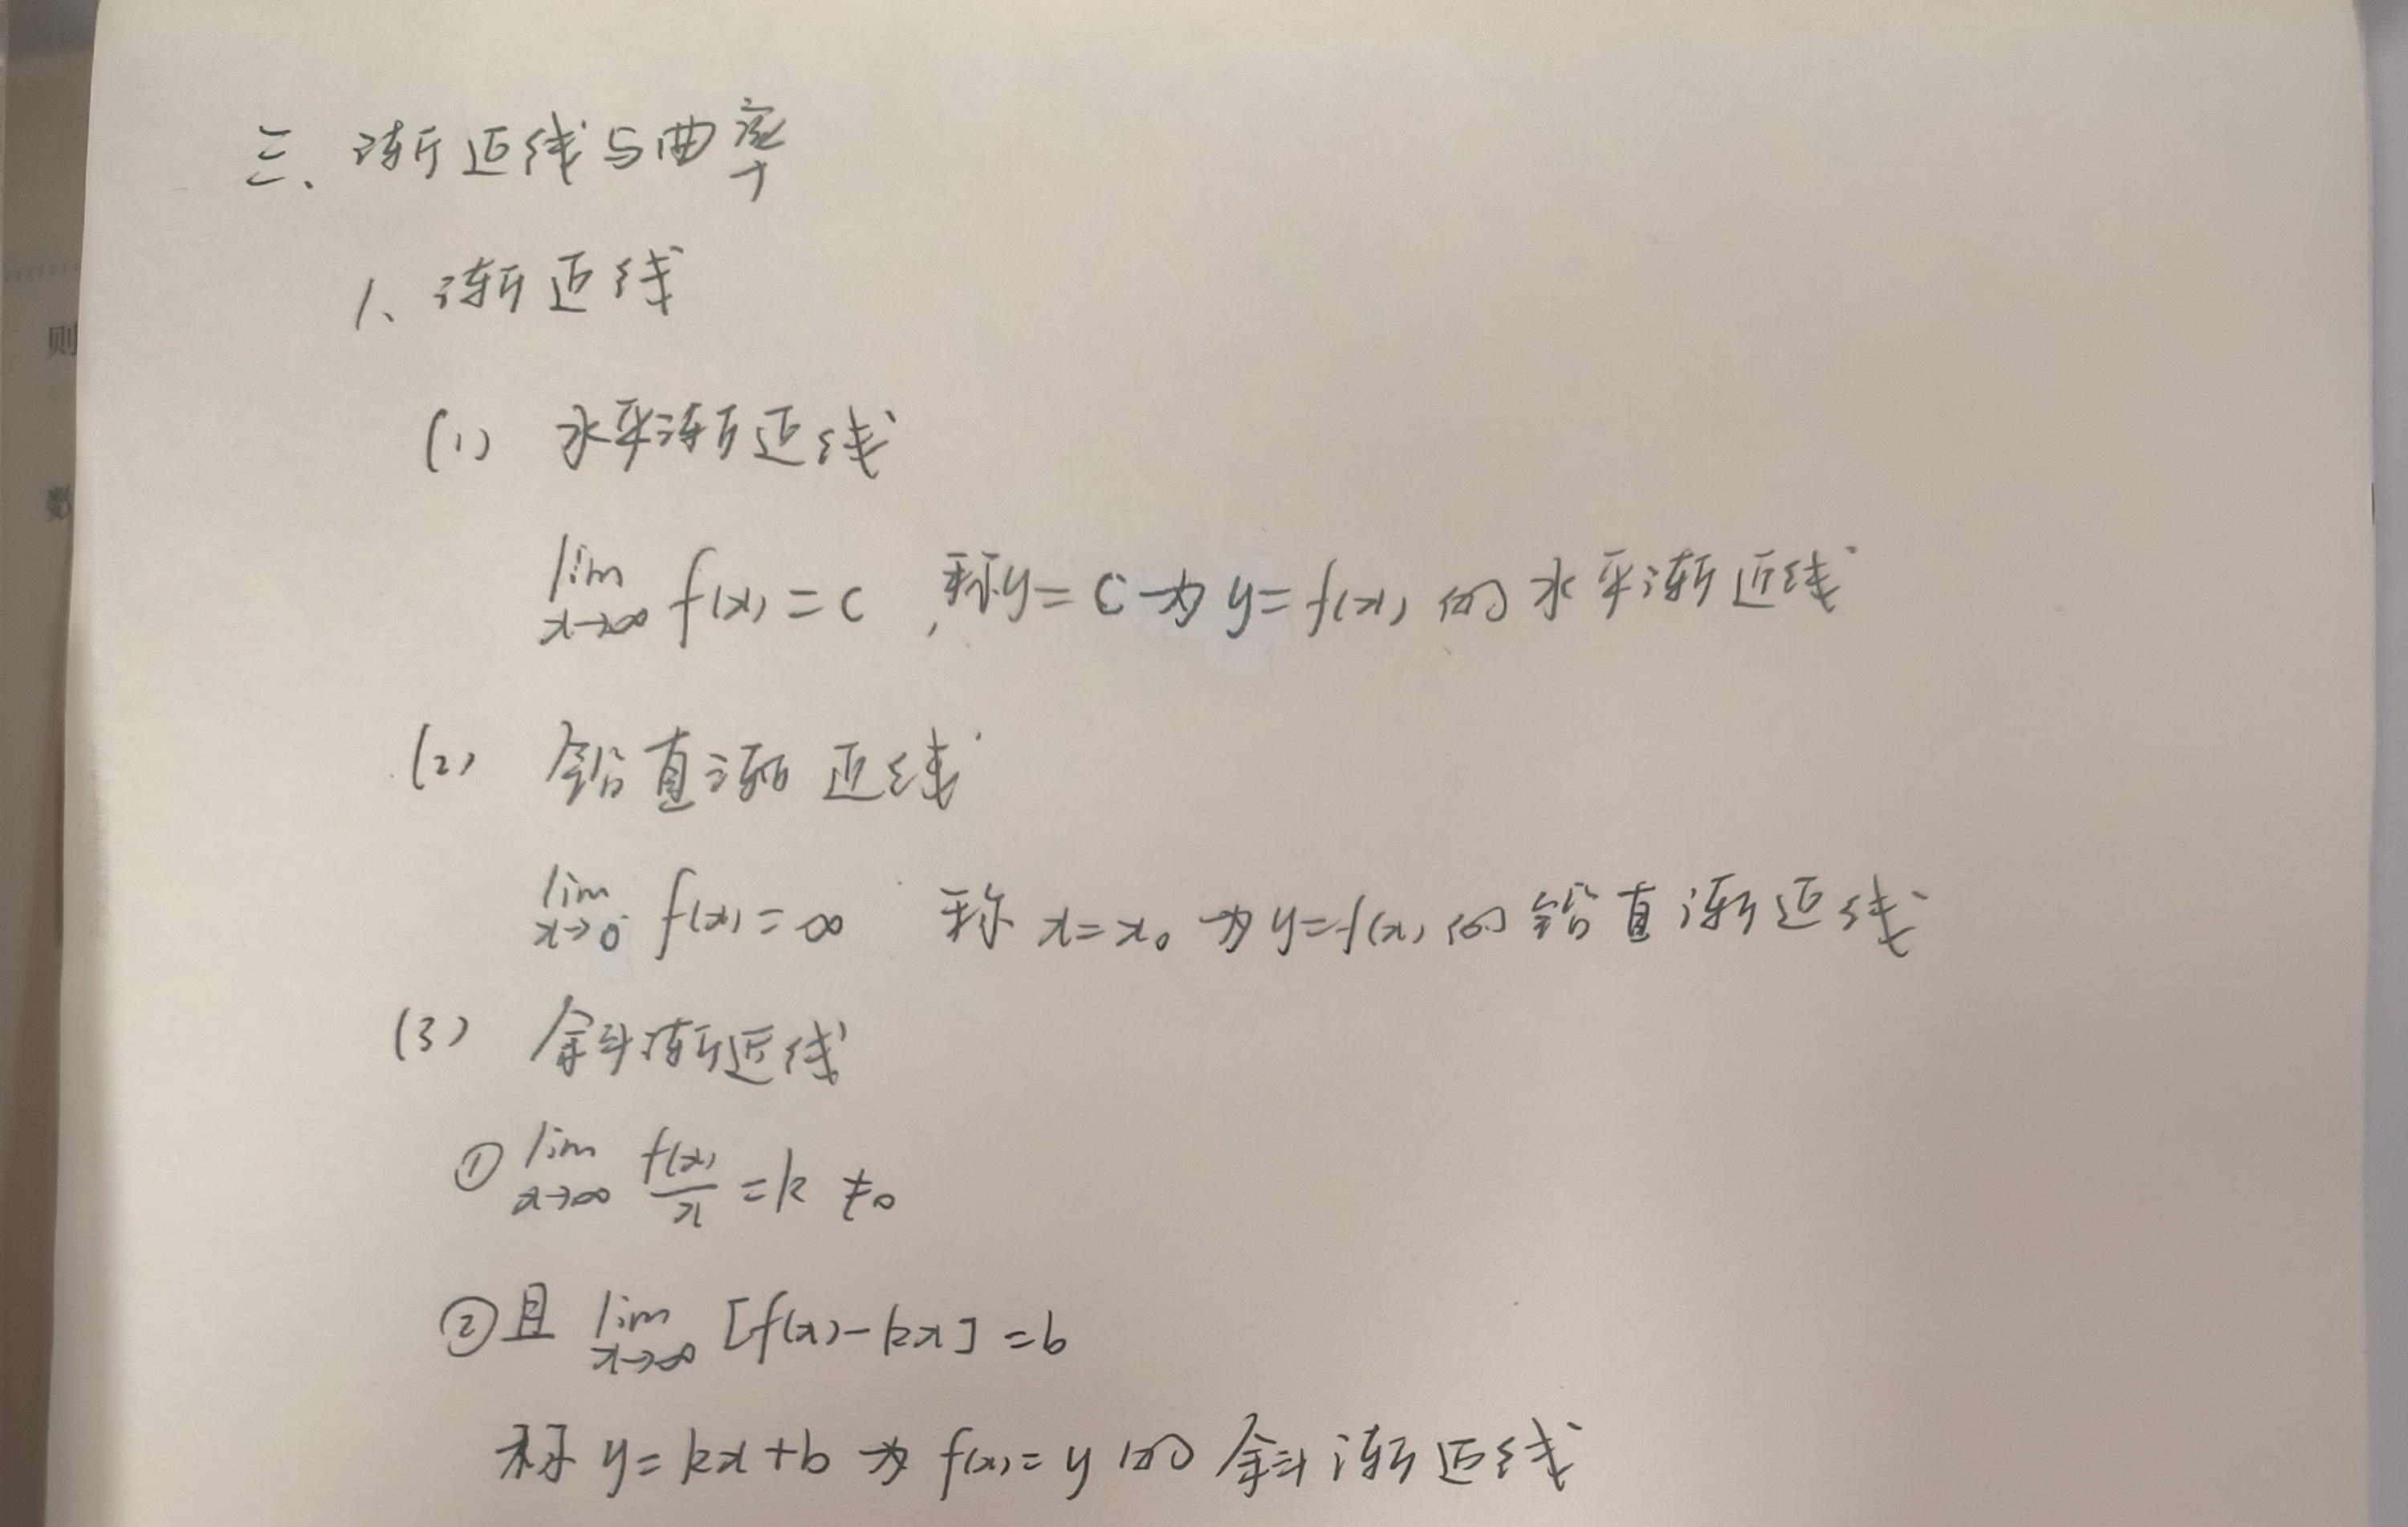 三、渐近线与曲率
1、渐近线
(1) 水平渐近线
lim x→∞ f(x) = c ,称y = c为y = f(x)的水平渐近线
(2) 铅直渐近线
lim x→0 f(x) = ∞ 称 x = x₀ 为y = f(x)的铅直渐近线
(3) 斜渐近线
① lim x→∞ f(x)/x = k ≠0
②且 lim x→∞ [f(x) - kx] = b
称 y = kx + b 为 f(x) = y 的斜渐近线
则
数